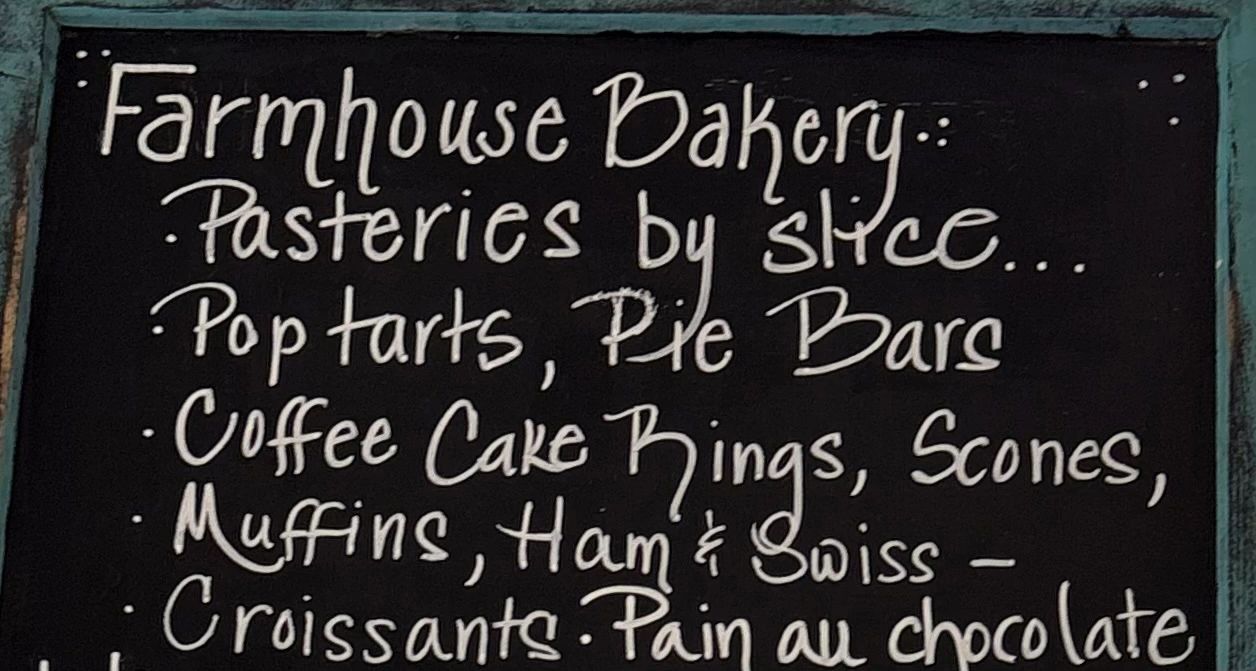 Farmhouse Bakery
· Pasteries by slice...
· Pop tarts, Pie Bars
· Coffee Cake Rings, Scones,
· Muffins, Ham & Swiss –
· Croissants · Pain au chocolate